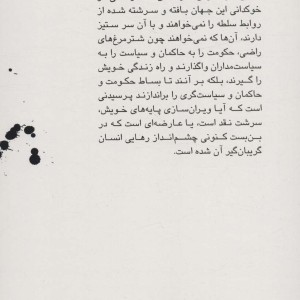 خوکدانی این جهان بافته و سرشته شده از
روابط سلطه را نمی‌خواهند و با آن سر ستیز
دارند، آن‌ها که نمی‌خواهند چون شترمرغ‌های
راضی، حکومت را به حاکمان و سیاست را به
سیاست‌مداران واگذارند و راه زندگی خویش
را گیرند، بلکه بر آنند تا بساط حکومت و
حاکمان و سیاست‌گری را براندازند پرسیدنی
است که آیا ویران‌سازی پایه‌های خویش،
سرشت نقد است، یا عارضه‌ای است که در
بن‌بست کنونی چشم‌انداز رهایی انسان
گریبان‌گیر آن شده است.